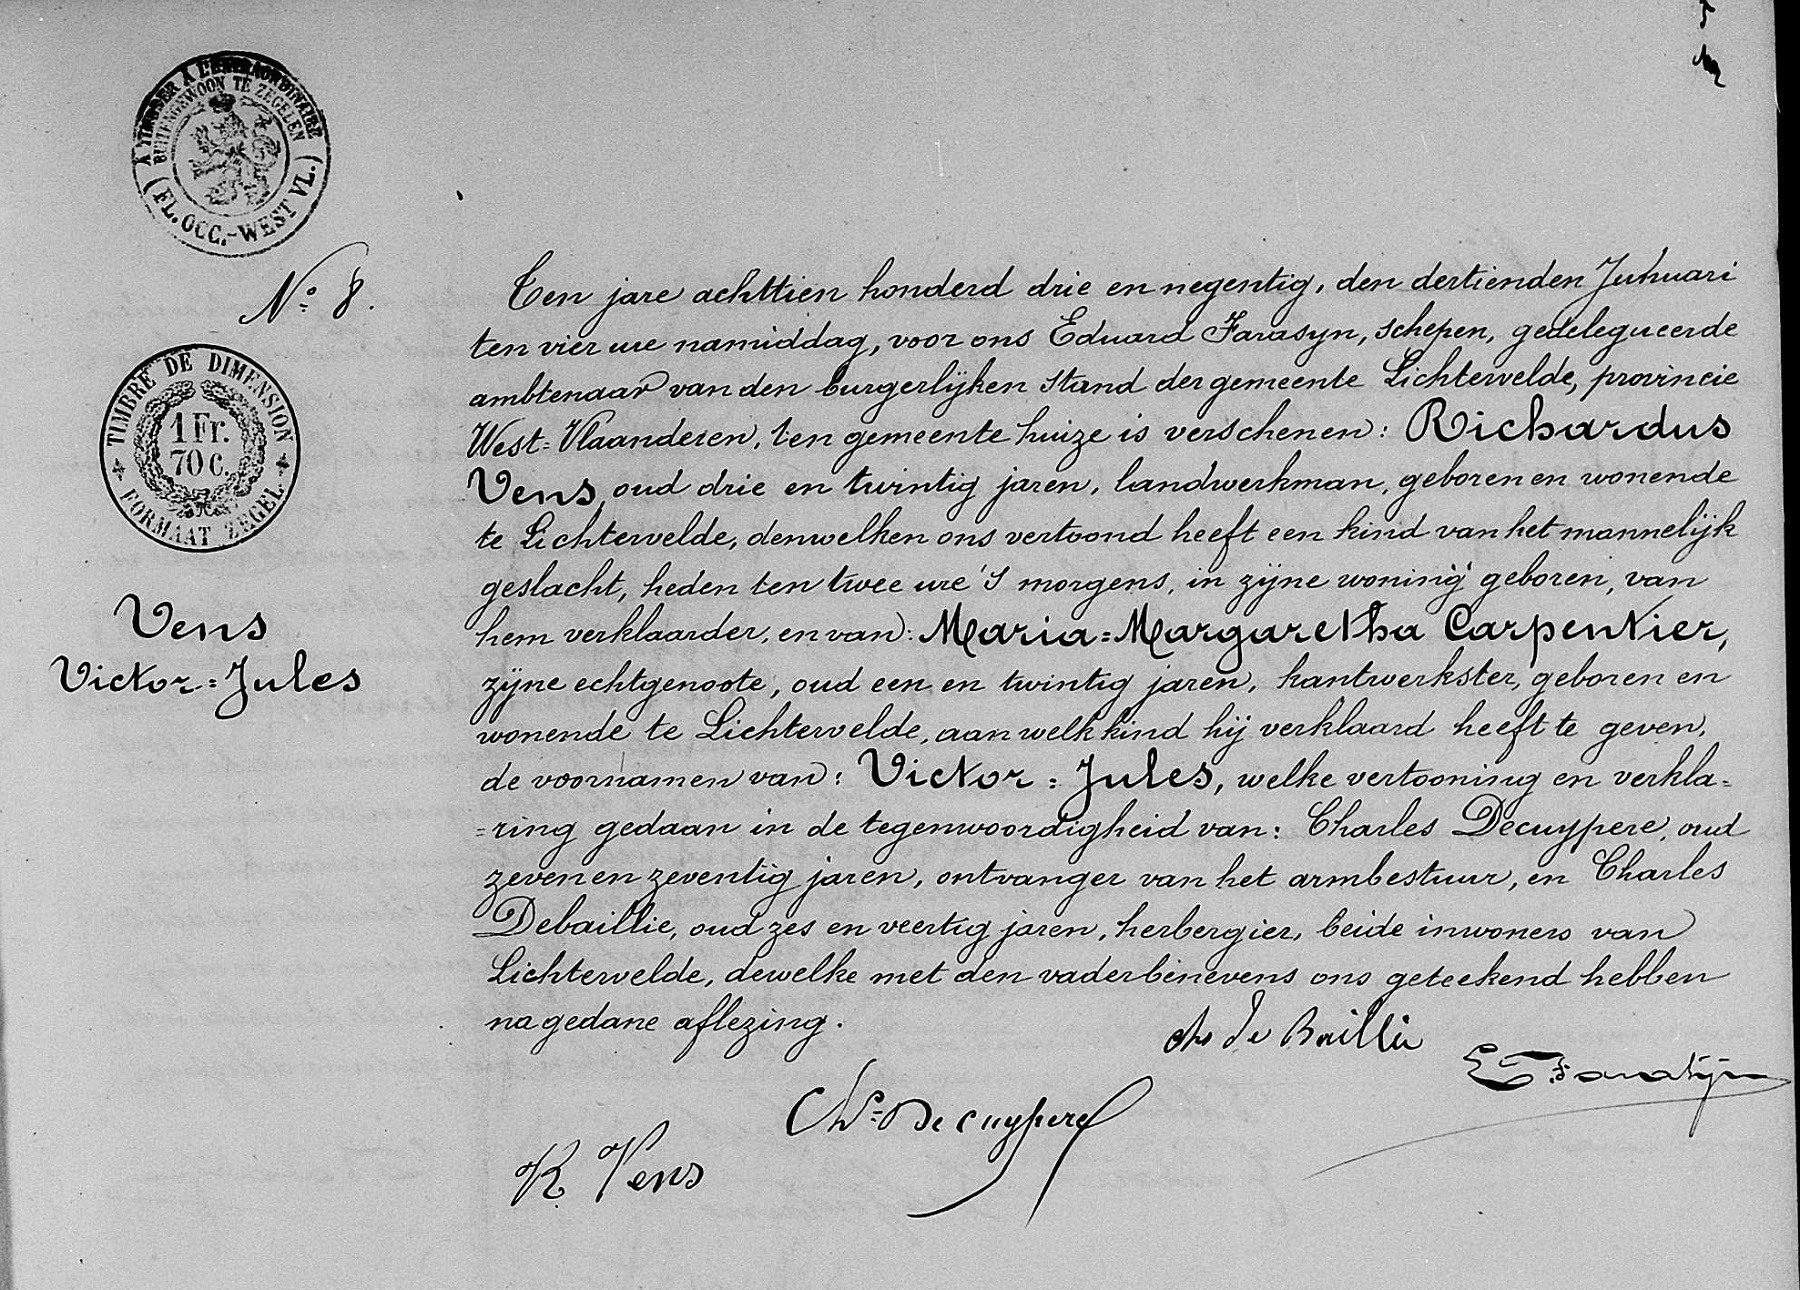 A TIMBRER A L'EXTRAORDINAIRE
BUITENGEWOON TE ZEGELEN
(FL. OCC.-WEST VL.)
No. 8.
TIMBRE DE DIMENSION
1 Fr.
70 C.
FORMAAT ZEGEL
Vens
Victor=Jules
Ten jare achttien honderd drie en negentig, den dertienden Januari
ten vier ure namiddag, voor ons Eduard Farasyn, schepen, gedelegueerde
ambtenaar van den burgerlijken Stand der gemeente Lichtervelde, provincie
West=Vlaanderen, ten gemeente huize is verschenen: Richardus
Vens, oud drie en twintig jaren, landwerkman, geboren en wonende
te Lichtervelde, denwelken ons vertoond heeft een kind van het mannelijk
geslacht, heden ten twee ure 's morgens, in zijne woning geboren, van
hem verklaarder, en van: Maria=Margaretha Carpentier,
zijne echtgenoote, oud een en twintig jaren, kantwerkster, geboren en
wonende te Lichtervelde, aan welk kind hij verklaard heeft te geven,
de voornamen van: Victor=Jules, welke vertooning en verkla=
=ring gedaan in de tegenwoordigheid van: Charles Decuypere, oud
zeven en zeventig jaren, ontvanger van het armbestuur, en Charles
Debaillie, oud zes en veertig jaren, herbergier, beide inwoners van
Lichtervelde, dewelke met den vader benevens ons geteekend hebben
na gedane aflezing.
Chs De Baillie
E Farasijn
Chs= Decuypere
R Vens